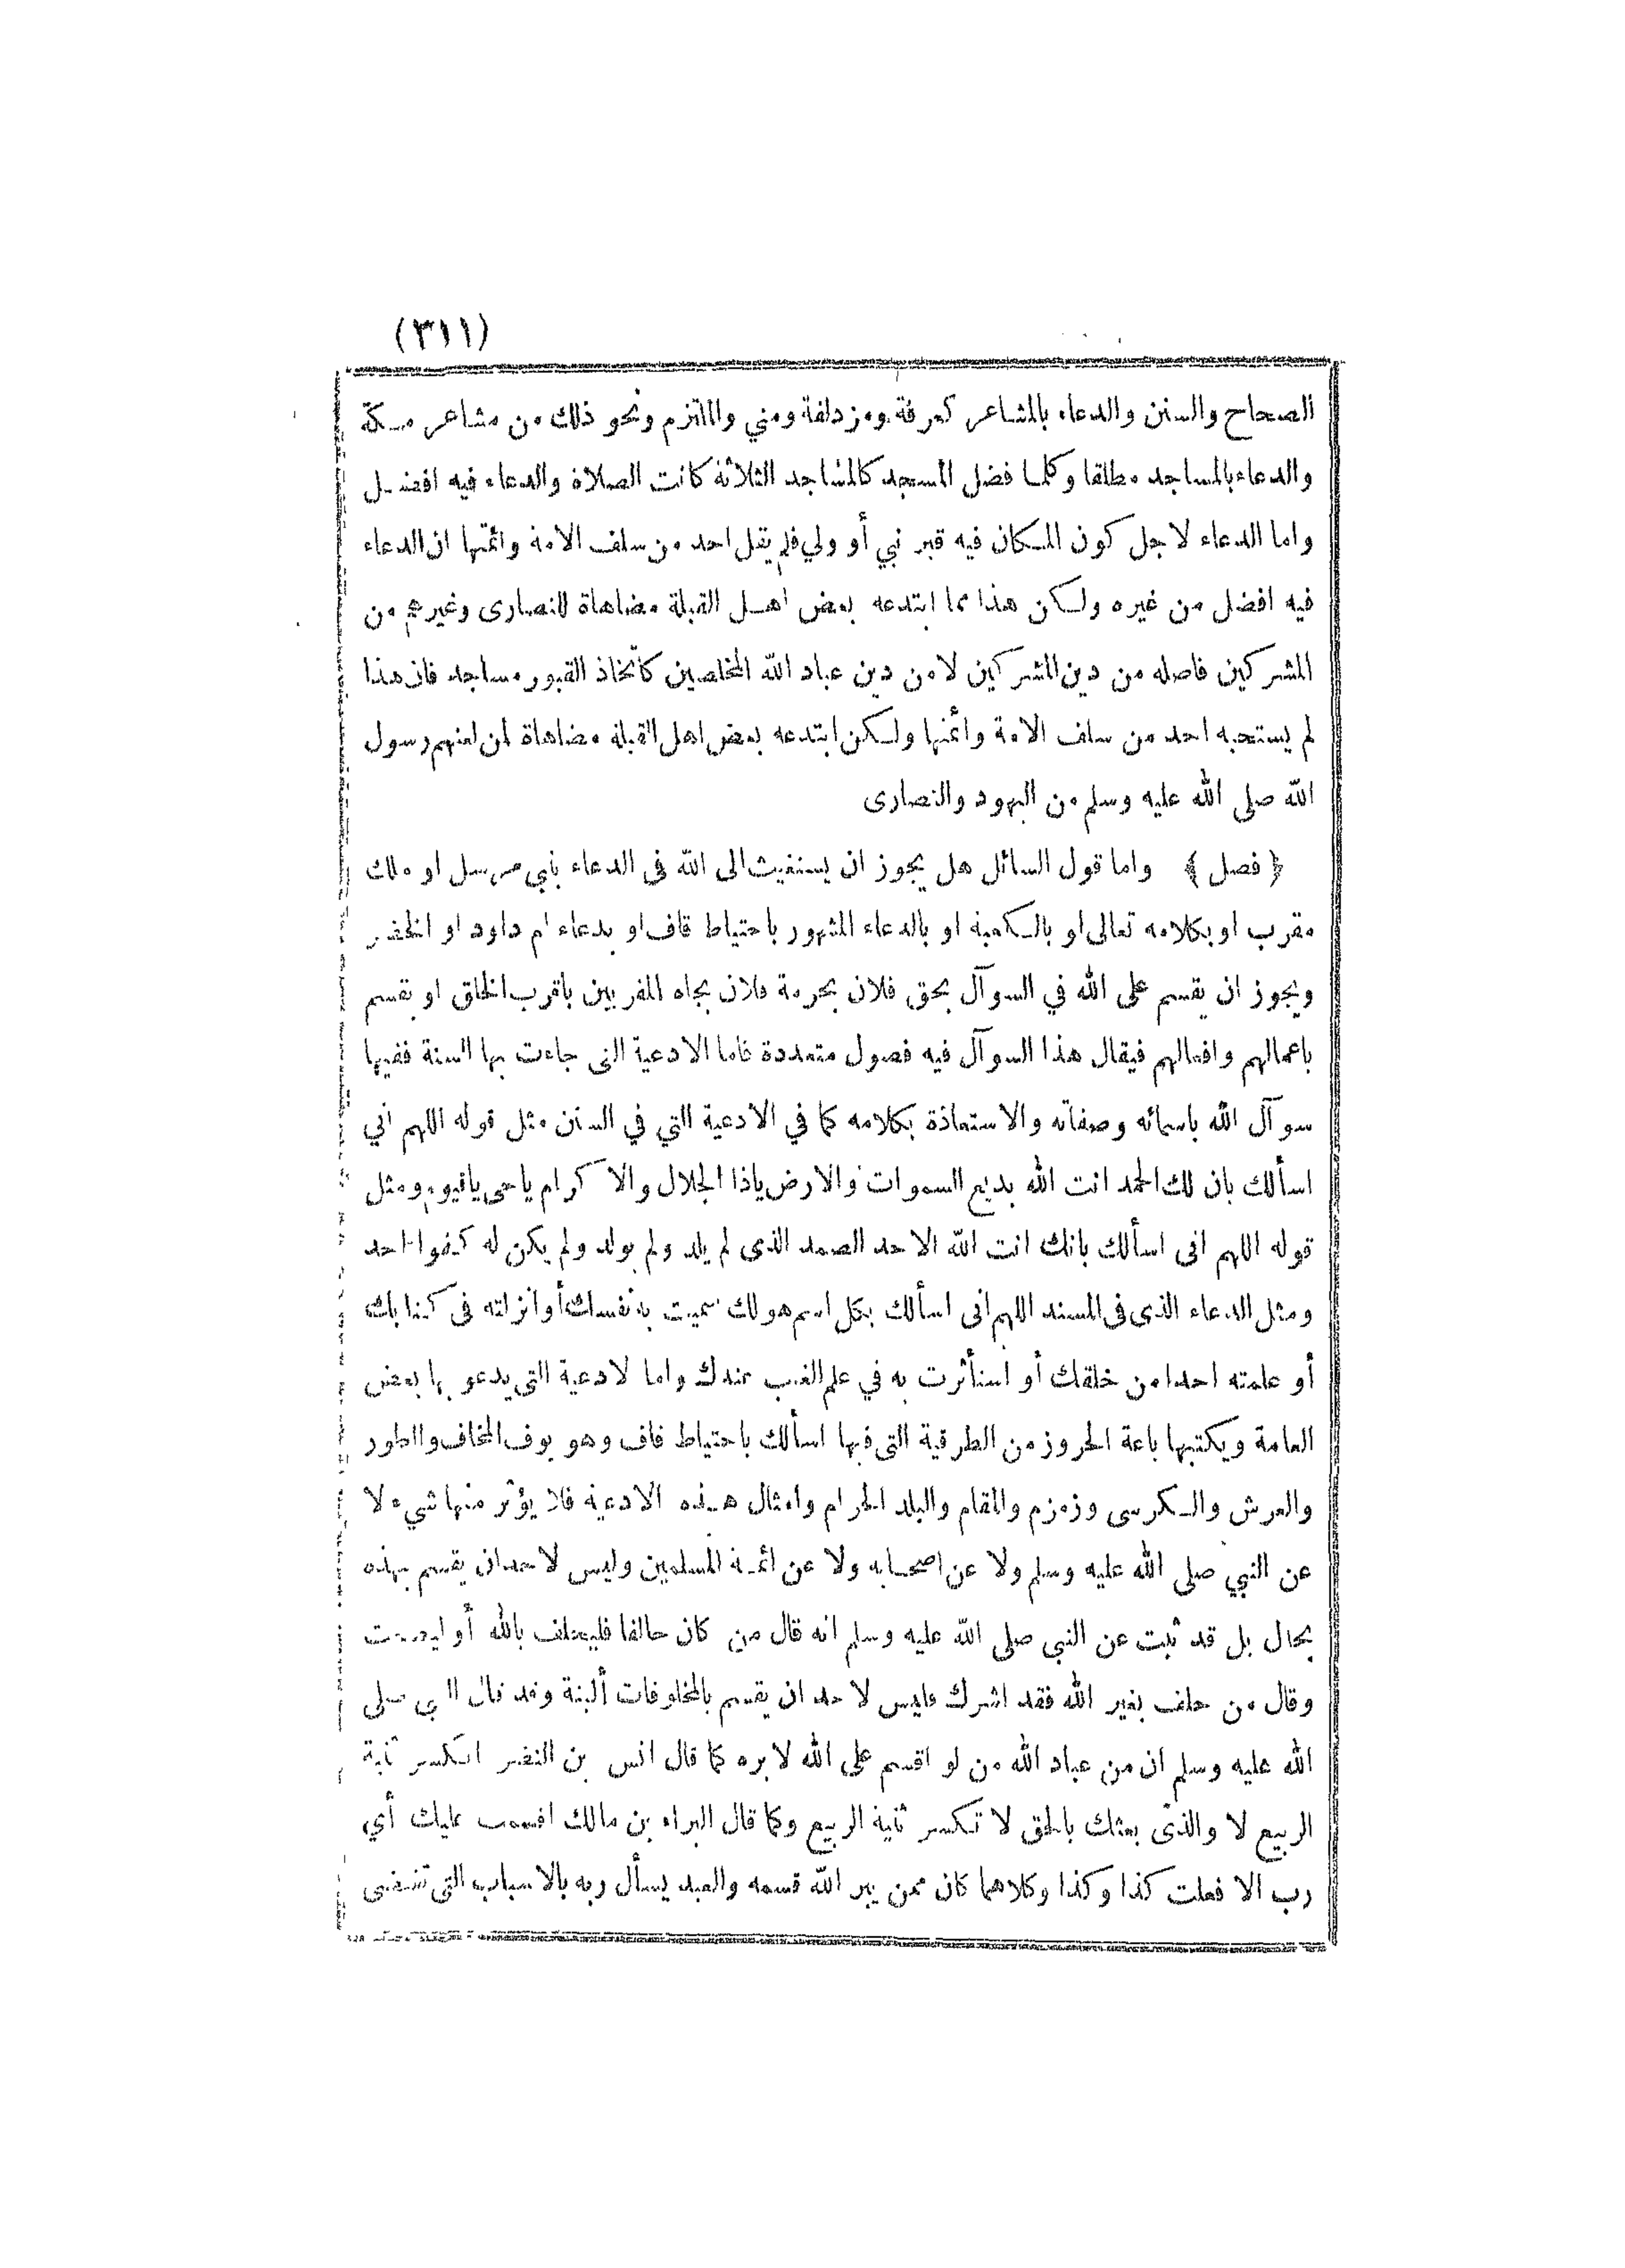 (٣١١)
الصحاح والسنن والدعاء بالمشاعر كعرفة ومزدلفة ومني والملتزم ونحو ذلك من مشاعر مكة
والدعاء بالمساجد مطلقا وكلما فضل المسجد كالمساجد الثلاثة كانت الصلاة والدعاء فيه افضل
واما الدعاء لاجل كون المكان فيه قبر نبي أو ولي فلم يقل احد من سلف الامة وائمتها ان الدعاء
فيه افضل من غيره ولكن هذا مما ابتدعه بعض اهل القبلة مضاهاة للنصارى وغيرهم من
المشركين فاصله من دين المشركين لا من دين عباد الله المخلصين كاتخاذ القبور مساجد فان هذا
لم يستحبه احد من سلف الامة وائمتها ولكن ابتدعه بعض اهل القبلة مضاهاة لمن لعنهم رسول
الله صلى الله عليه وسلم من اليهود والنصارى
﴿ فصل ﴾ واما قول السائل هل يجوز ان يستغيث الى الله فى الدعاء بنبي مرسل او ملك
مقرب او بكلامه تعالى او بالكعبة او بالدعاء المشهور باحتياط قاف او بدعاء ام داود او الخضر
ويجوز ان يقسم على الله في السوآل بحق فلان بحرمة فلان بجاه المقربين باقرب الخلق او يقسم
باعمالهم وافعالهم فيقال هذا السوآل فيه فصول متعددة فاما الادعية التى جاءت بها السنة ففيها
سوآل الله باسمائه وصفاته والاستعاذة بكلامه كما في الأدعية التي في السنن مثل قوله اللهم اني
اسألك بان لك الحمد انت الله بديع السموات والارض ياذا الجلال والاكرام ياحى ياقيوم ومثل
قوله اللهم انى اسألك بانك انت الله الاحد الصمد الذى لم يلد ولم يولد ولم يكن له كفوا احد
ومثل الدعاء الذى فى المسند اللهم انى اسألك بكل اسم هو لك سميت به نفسك أو انزلته فى كتابك
أو علمته احدا من خلقك أو استأثرت به في علم الغيب عندك واما لادعية التى يدعو بها بعض
العامة ويكتبها باعة الحروز من الطرقية التى فيها اسألك باحتياط قاف وهو يوف المخاف والطور
والعرش والكرسى وزمزم والمقام والبلد الحرام وامثال هذه الادعية فلا يؤثر منها شيء لا
عن النبي صلى الله عليه وسلم ولا عن اصحابه ولا عن ائمة المسلمين وليس لاحد ان يقسم بهذه
بحال بل قد ثبت عن النبى صلى الله عليه وسلم انه قال من كان حالفا فليحلف بالله أو ليصمت
وقال من حلف بغير الله فقد اشرك فليس لاحد ان يقسم بالمخلوقات ألبتة وقد قال النبي صلى
الله عليه وسلم ان من عباد الله من لو اقسم على الله لابره كما قال انس بن النضر اتكسر ثنية
الربيع لا والذى بعثك بالحق لا تكسر ثنية الربيع وكما قال البراء بن مالك اقسمت عليك أي
رب الا فعلت كذا وكذا وكلاهما كان ممن يبر الله قسمه والعبد يسأل ربه بالاسباب التى تقتضى